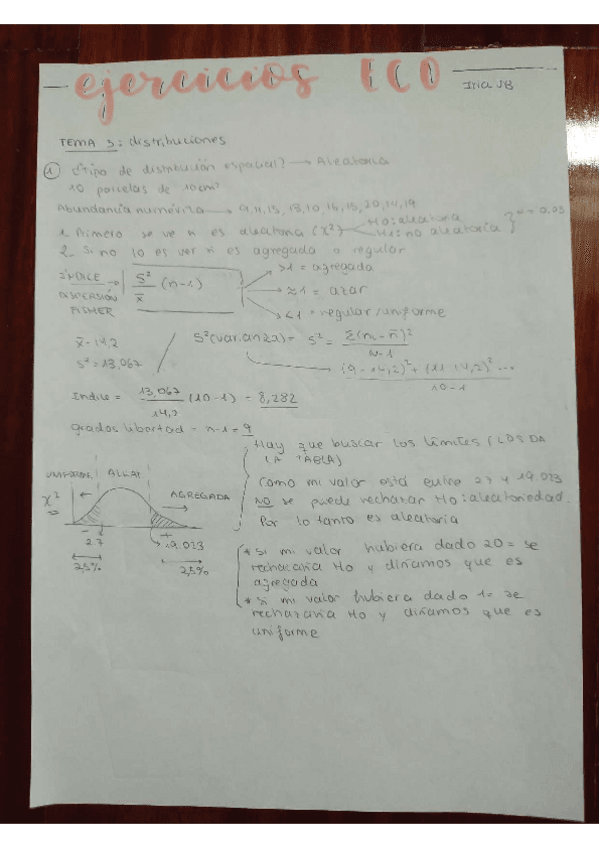 ejercicios ECO
Iria VB
TEMA 3: distribuciones
1 ¿Tipo de distribución espacial? → Aleatoria
10 parcelas de 10cm²
Abundancia numérica → 9,11,15,13,10,16,15,20,14,19
1. Primero se ve si es aleatoria (x²) Ho: aleatoria H1: no aleatoria } α = 0.05
2. Si no lo es ver si es agregada o regular
ÍNDICE DISPERSIÓN FISHER → S²/x̄ (n-1)
>1 = agregada
≈1 = azar
<1 = regular/uniforme
x̄ = 14,2
s² = 13,067
S²(varianza) = S² = Σ(ni - n̄)² / N-1
(9-14,2)² + (11-14,2)² ... / 10-1
Indice = 13,067/14,2 (10-1) = 8,282
grados libertad = n-1 = 9
Hay que buscar los límites (LOS DA LA TABLA)
Como mi valor está entre 2.7 y 19.023
NO se puede rechazar Ho: aleatoriedad.
Por lo tanto es aleatoria
UNIFORM. ALEAT AGREGADA
x²
- +
2.7 19.023
2,5% 2,5%
* Si mi valor hubiera dado 20 = se
rechazaría Ho y diríamos que es
agregada
* si mi valor hubiera dado 1 = se
rechazaría Ho y diríamos que es
uniforme